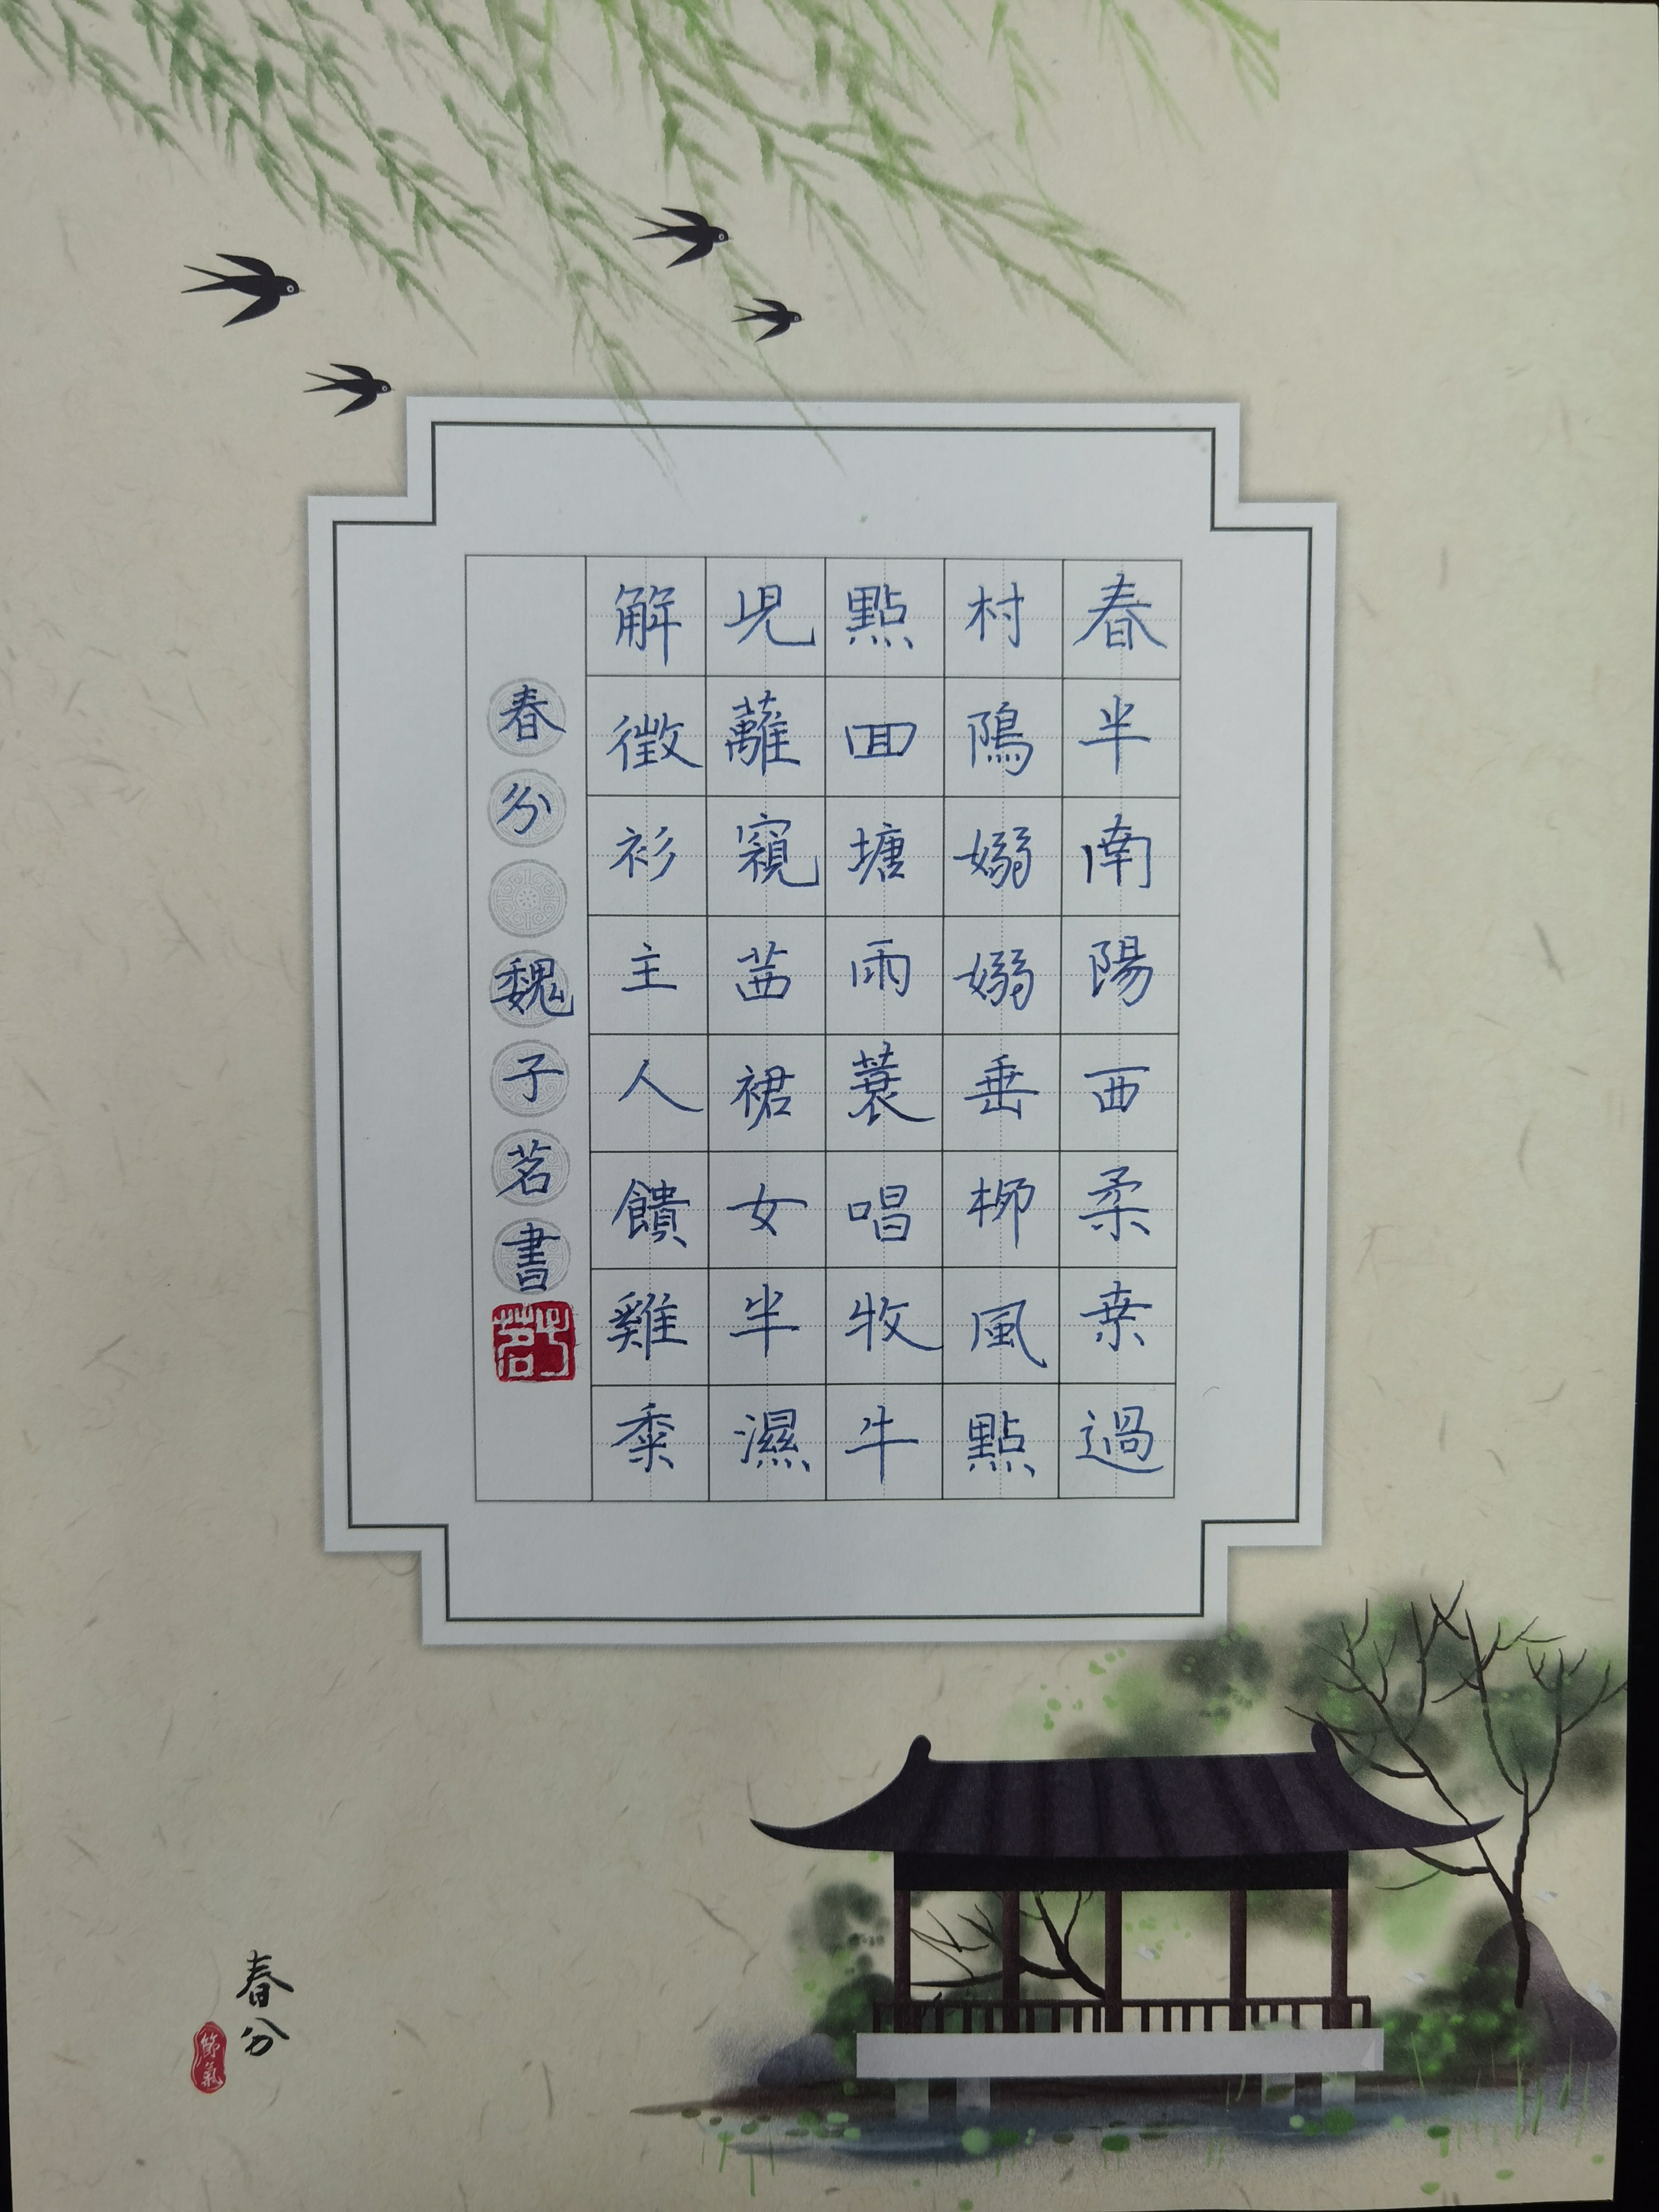 春半南陽西柔桒過
村隝嫋嫋垂桺風點
點回塘雨蓑唱牧牛
児蘺窺茜裙女半濕
解徵衫主人饋雞黍
春分 魏子茗書
子茗
春分
節氣